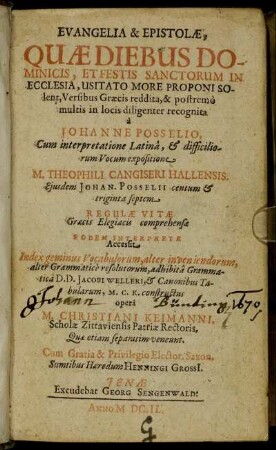 EVANGELIA & EPISTOLÆ,
QUÆ DIEBUS DO-
MINICIS, ET FESTIS SANCTORUM IN
ECCLESIA, USITATO MORE PROPONI SO-
lent, Versibus Græcis reddita, & postremò
multis in locis diligenter recognita
à
JOHANNE POSSELIO,
Cum interpretatione Latinâ, & difficilio-
rum Vocum expositione
M. THEOPHILI CANGISERI HALLENSIS.
Ejusdem JOHAN. POSSELII centum &
triginta septem
REGULÆ VITÆ
Græcis Elegiacis comprehensæ
EODEM INTERPRETE
Accessit
Index geminus Vocabulorum, alter inveniendorum,
alter Grammaticè resolutorum, adhibitâ Gramma-
ticâ D.D. JACOBI WELLERI, & Canonibus Ta-
bularum, M. C. K. constructus
Johann Bünting 1670,
operâ
M. CHRISTIANI KEIMANNI,
Scholæ Zittaviensis Patriæ Rectoris,
Quæ etiam separatim veneunt.
Cum Gratia & Privilegio Elector. Saxon.
Sumtibus Hæredum HENNINGI GROSSI.
JENÆ
Excudebat GEORG SENGENWALD.
ANNO M DC IL.